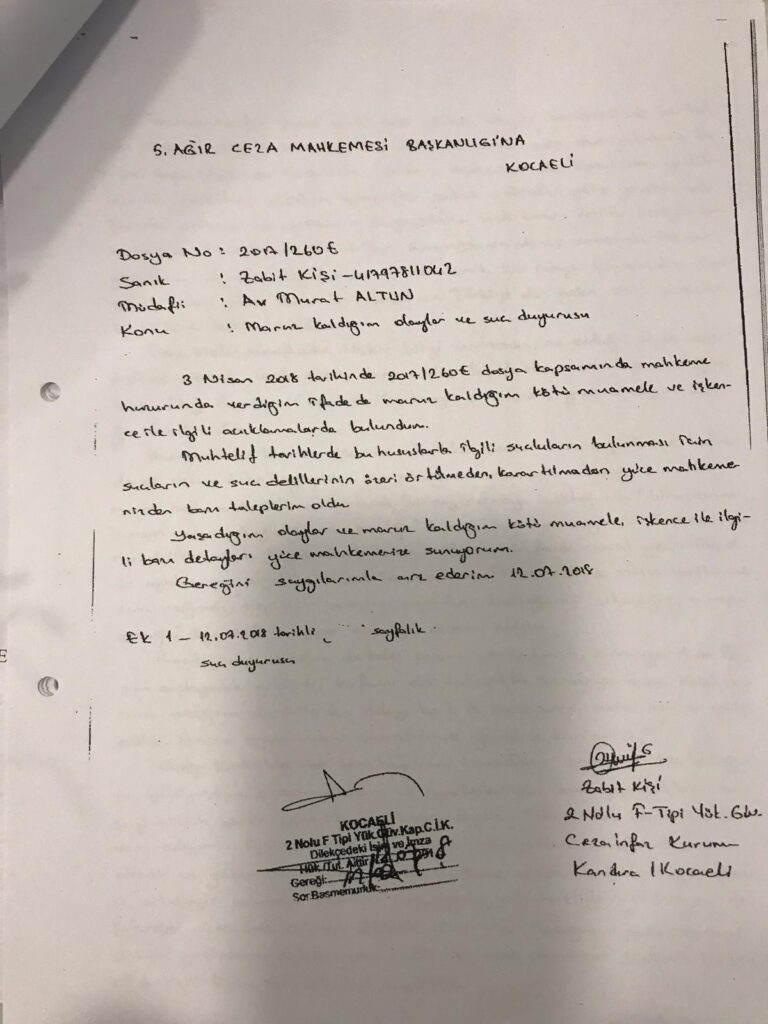 5. AĞIR CEZA MAHKEMESİ BAŞKANLIĞI'NA
KOCAELİ
Dosya No : 2017/260 E
Sanık : Zabit Kişi - 41797811042
Müdafii : Av Murat ALTUN
Konu : Maruz kaldığım olaylar ve suç duyurusu
3 Nisan 2018 tarihinde 2017/260 E dosya kapsamında mahkeme
huzurunda verdiğim ifade de maruz kaldığım kötü muamele ve işken-
ce ile ilgili açıklamalarda bulundum.
Muhtelif tarihlerde bu hususlarla ilgili suçluların bulunması için
suçların ve suç delillerinin üzeri örtülmeden, karartılmadan yüce mahkeme-
nizden bazı taleplerim oldu
Yaşadığım olaylar ve maruz kaldığım kötü muamele, işkence ile ilgi-
li bazı detayları yüce mahkemenize sunuyorum.
Gereğini saygılarımla arz ederim 12.07.2018
EK 1 - 12.07.2018 tarihli sayfalık
suç duyurusu
Zabit Kişi
2 Nolu F-Tipi Yük. Güv.
Ceza infaz Kurumu
Kandıra / Kocaeli
KOCAELİ
2 Nolu F Tipi Yük.Güv.Kap.C.İ.K.
Dilekçedeki İsim ve İmza
Hük./Tut. Aittir
Gereği:
Sor.Başmemurluk:
E